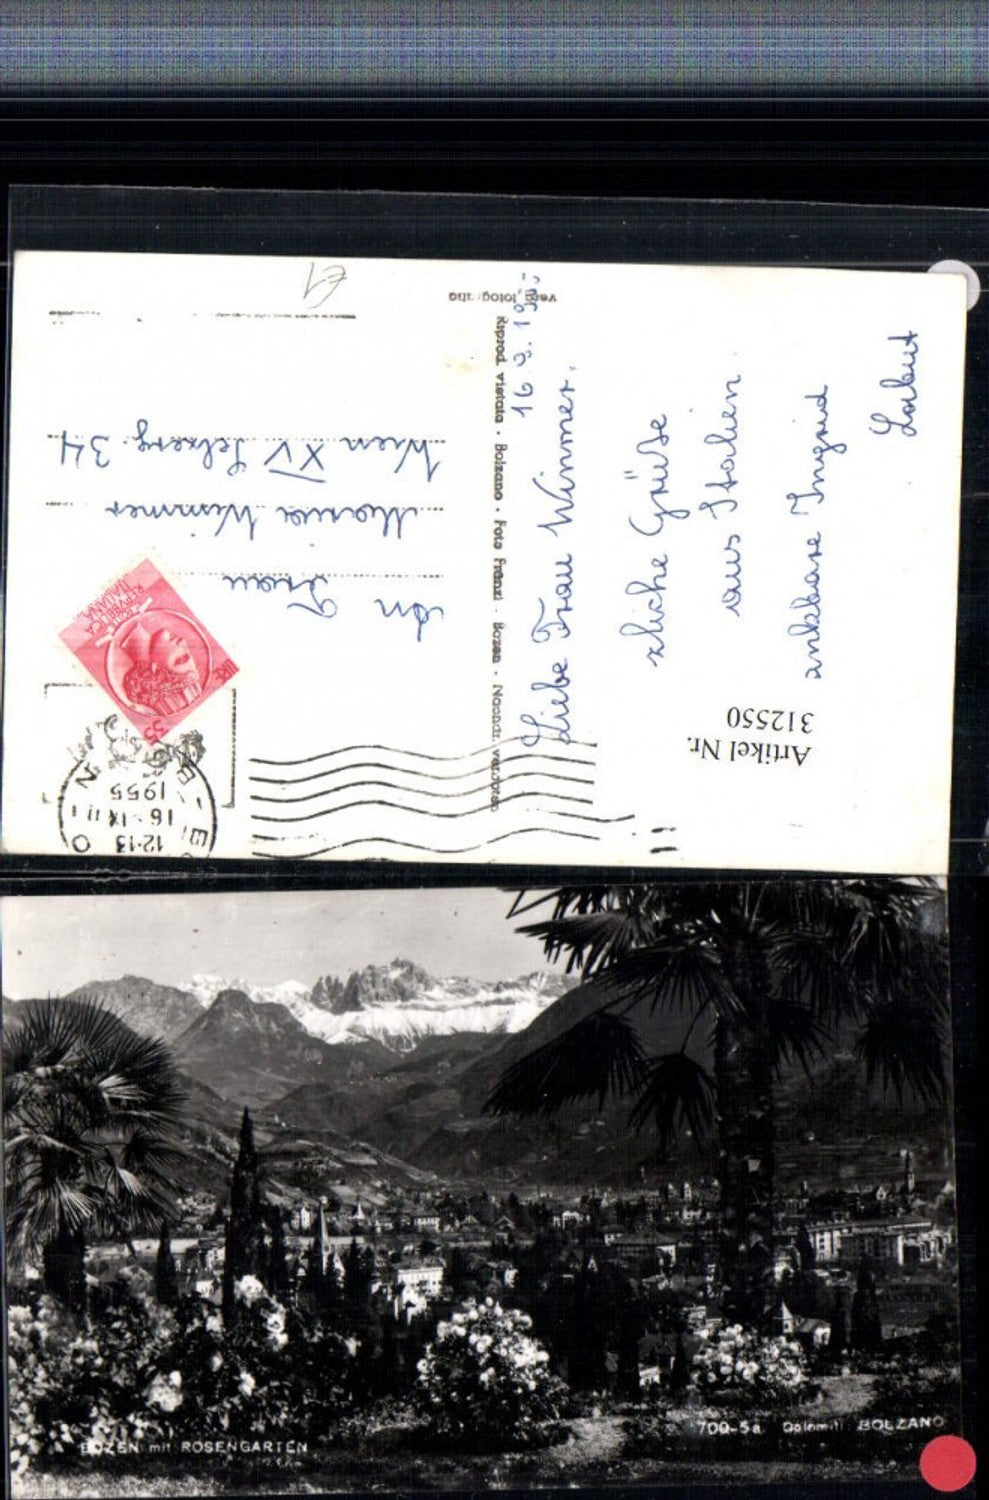 €1
vera fotografia
Riprod. vietata - Bolzano - Foto Fränzl - Bozen - Nachdr. verboten
16.9.1955
Liebe Frau Wimmer,
zliche Grüße
aus Italien
ankbare Ingrid
An
Frau
Maria Wimmer
Wien XV 34
REPVBBLICA
ITALIANA
LIRE
35
12-13
16 · IX
1955
Artikel Nr.
312550
BOZEN mit ROSENGARTEN
709-5a Dolomiti BOLZANO